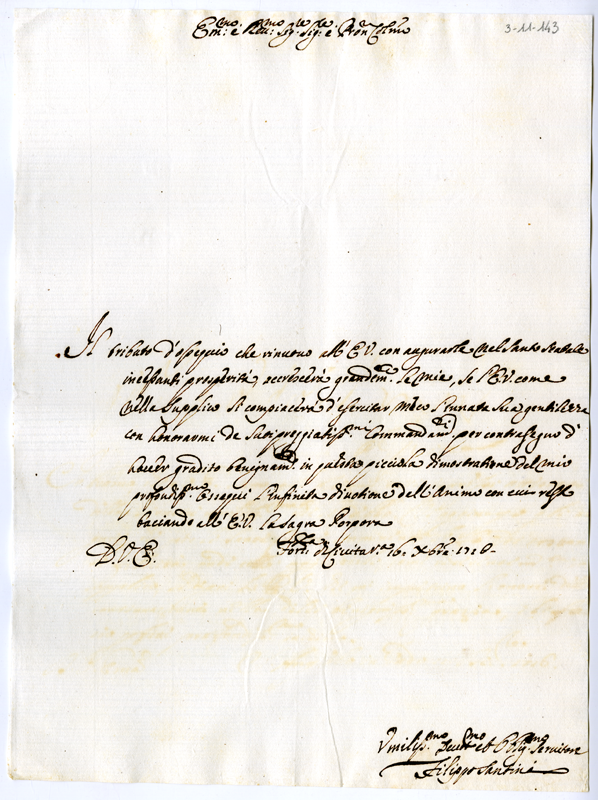 3-11-143
Em:mo e Reu:mo Sig:r Sig:re e Pron Colmo
Il tributo d'ossequio che rinuouo all' E.V. con augurarle nel Santo Natale
incessanti prosperità, accrescerà grandem:te le mie, se l'E.V. come
nella supplico si compiacerà d'esercitar meco l'innata sua gentilezza
con honorarmi de Suoi preggiatiss:mi Commandam:ti per contrasegno d'
hauer gradito benignam:te in questa picciola dimostratione del mio
profondiss:mo ossequi l'infinita diuotione dell'Animo con cui resto
baciando all' E.V. la Sagra Porpora
D.V.E:
Fort:za di Ciuita V.a 16: Xbre 1718
Vmiliss:mo Deuot:mo et Oblig:mo Seruitore
Filippo Santini